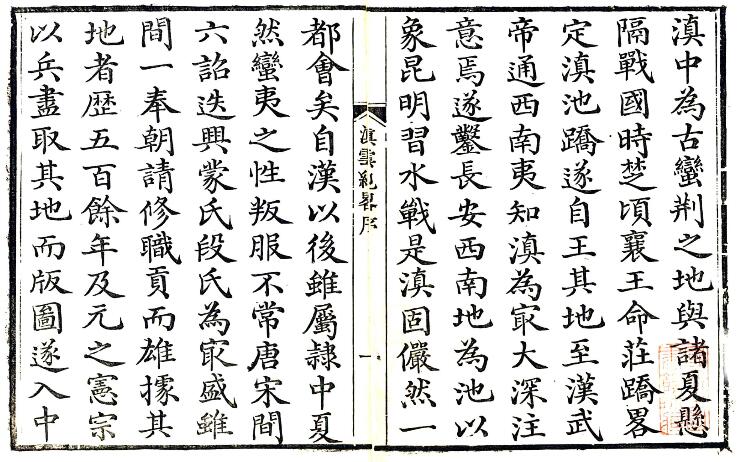 滇中為古蠻荆之地與諸夏懸
隔戰國時楚頃襄王命莊蹻畧
定滇池蹻遂自王其地至漢武
帝通西南夷知滇為冣大深注
意焉遂鑿長安西南地為池以
象昆明習水戰是滇固儼然一
滇雲紀畧序
一
都會矣自漢以後雖屬隷中夏
然蠻夷之性叛服不常唐宋間
六詔迭興蒙氏段氏為冣盛雖
間一奉朝請修職貢而雄據其
地者歷五百餘年及元之憲宗
以兵盡取其地而版圖遂入中